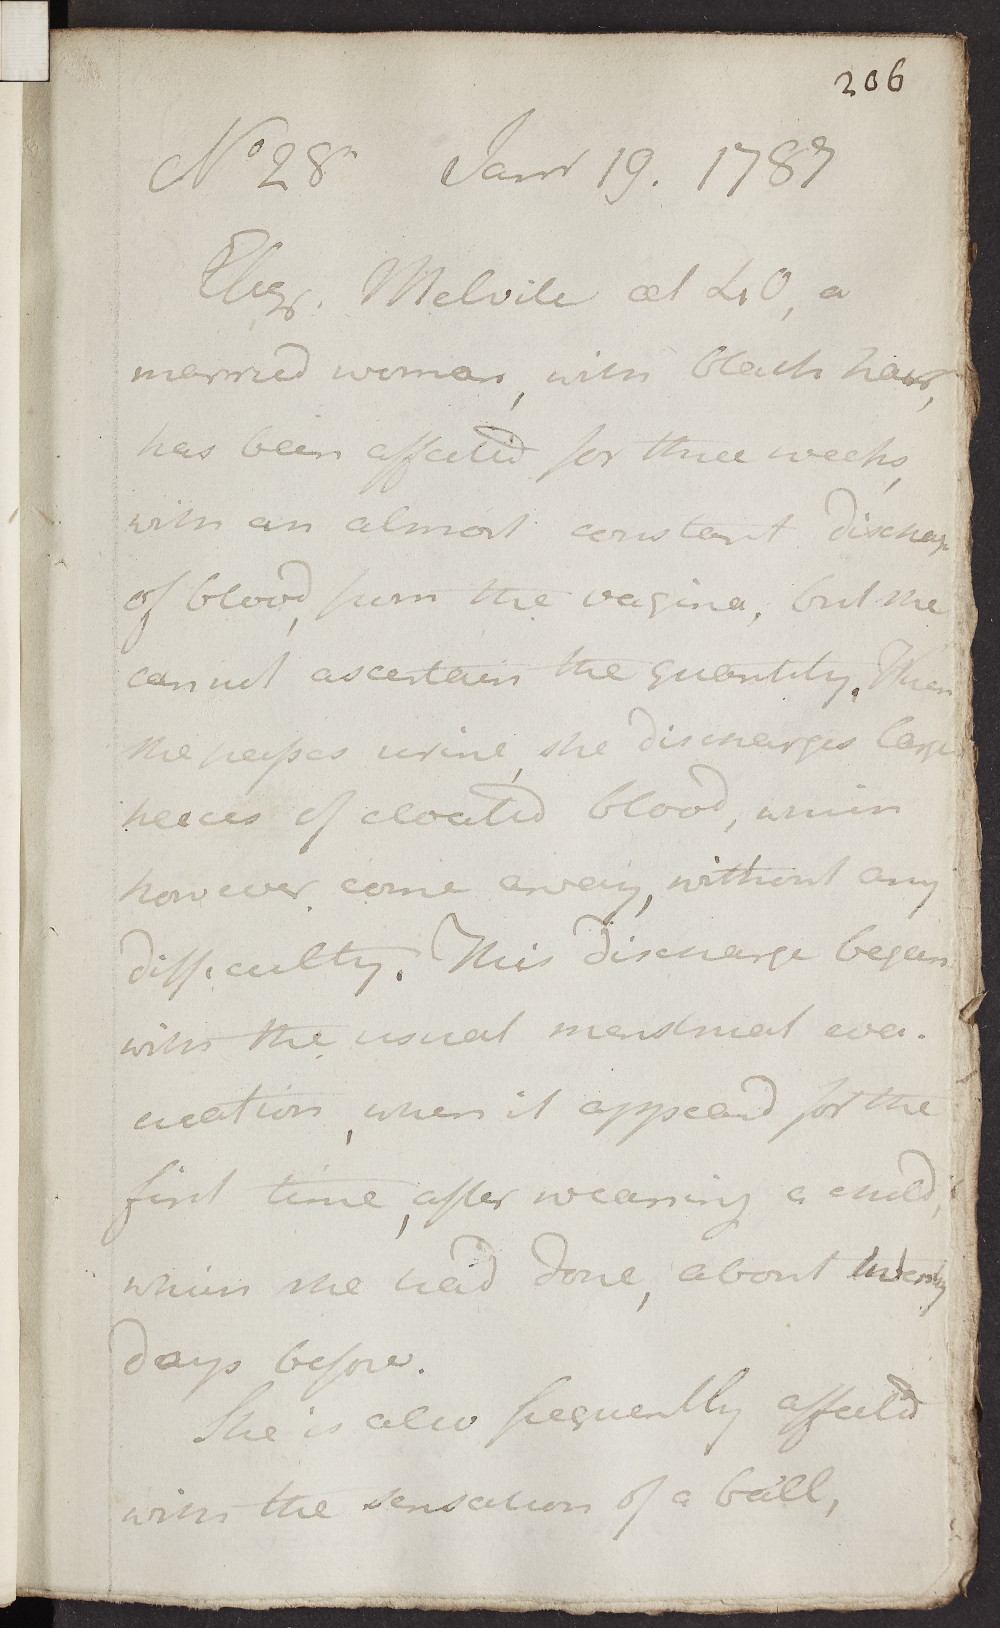 206
No 28. Janr 19. 1787
Elizr. Melvile æt 40, a
married woman, with black hair,
has been affected for three weeks,
with an almost constant discharge
of blood, from the vagina, but she
cannot ascertain the quantity. When
she passes urine, she discharges large
pieces of cloated blood, which
however come away, without any
difficulty. This discharge began
with the usual menstrual eva-
cuation, when it appeard for the
first time, after weaning a child,
which she had done, about twenty
days before.
She is also frequently affected
with the sensation of a ball,